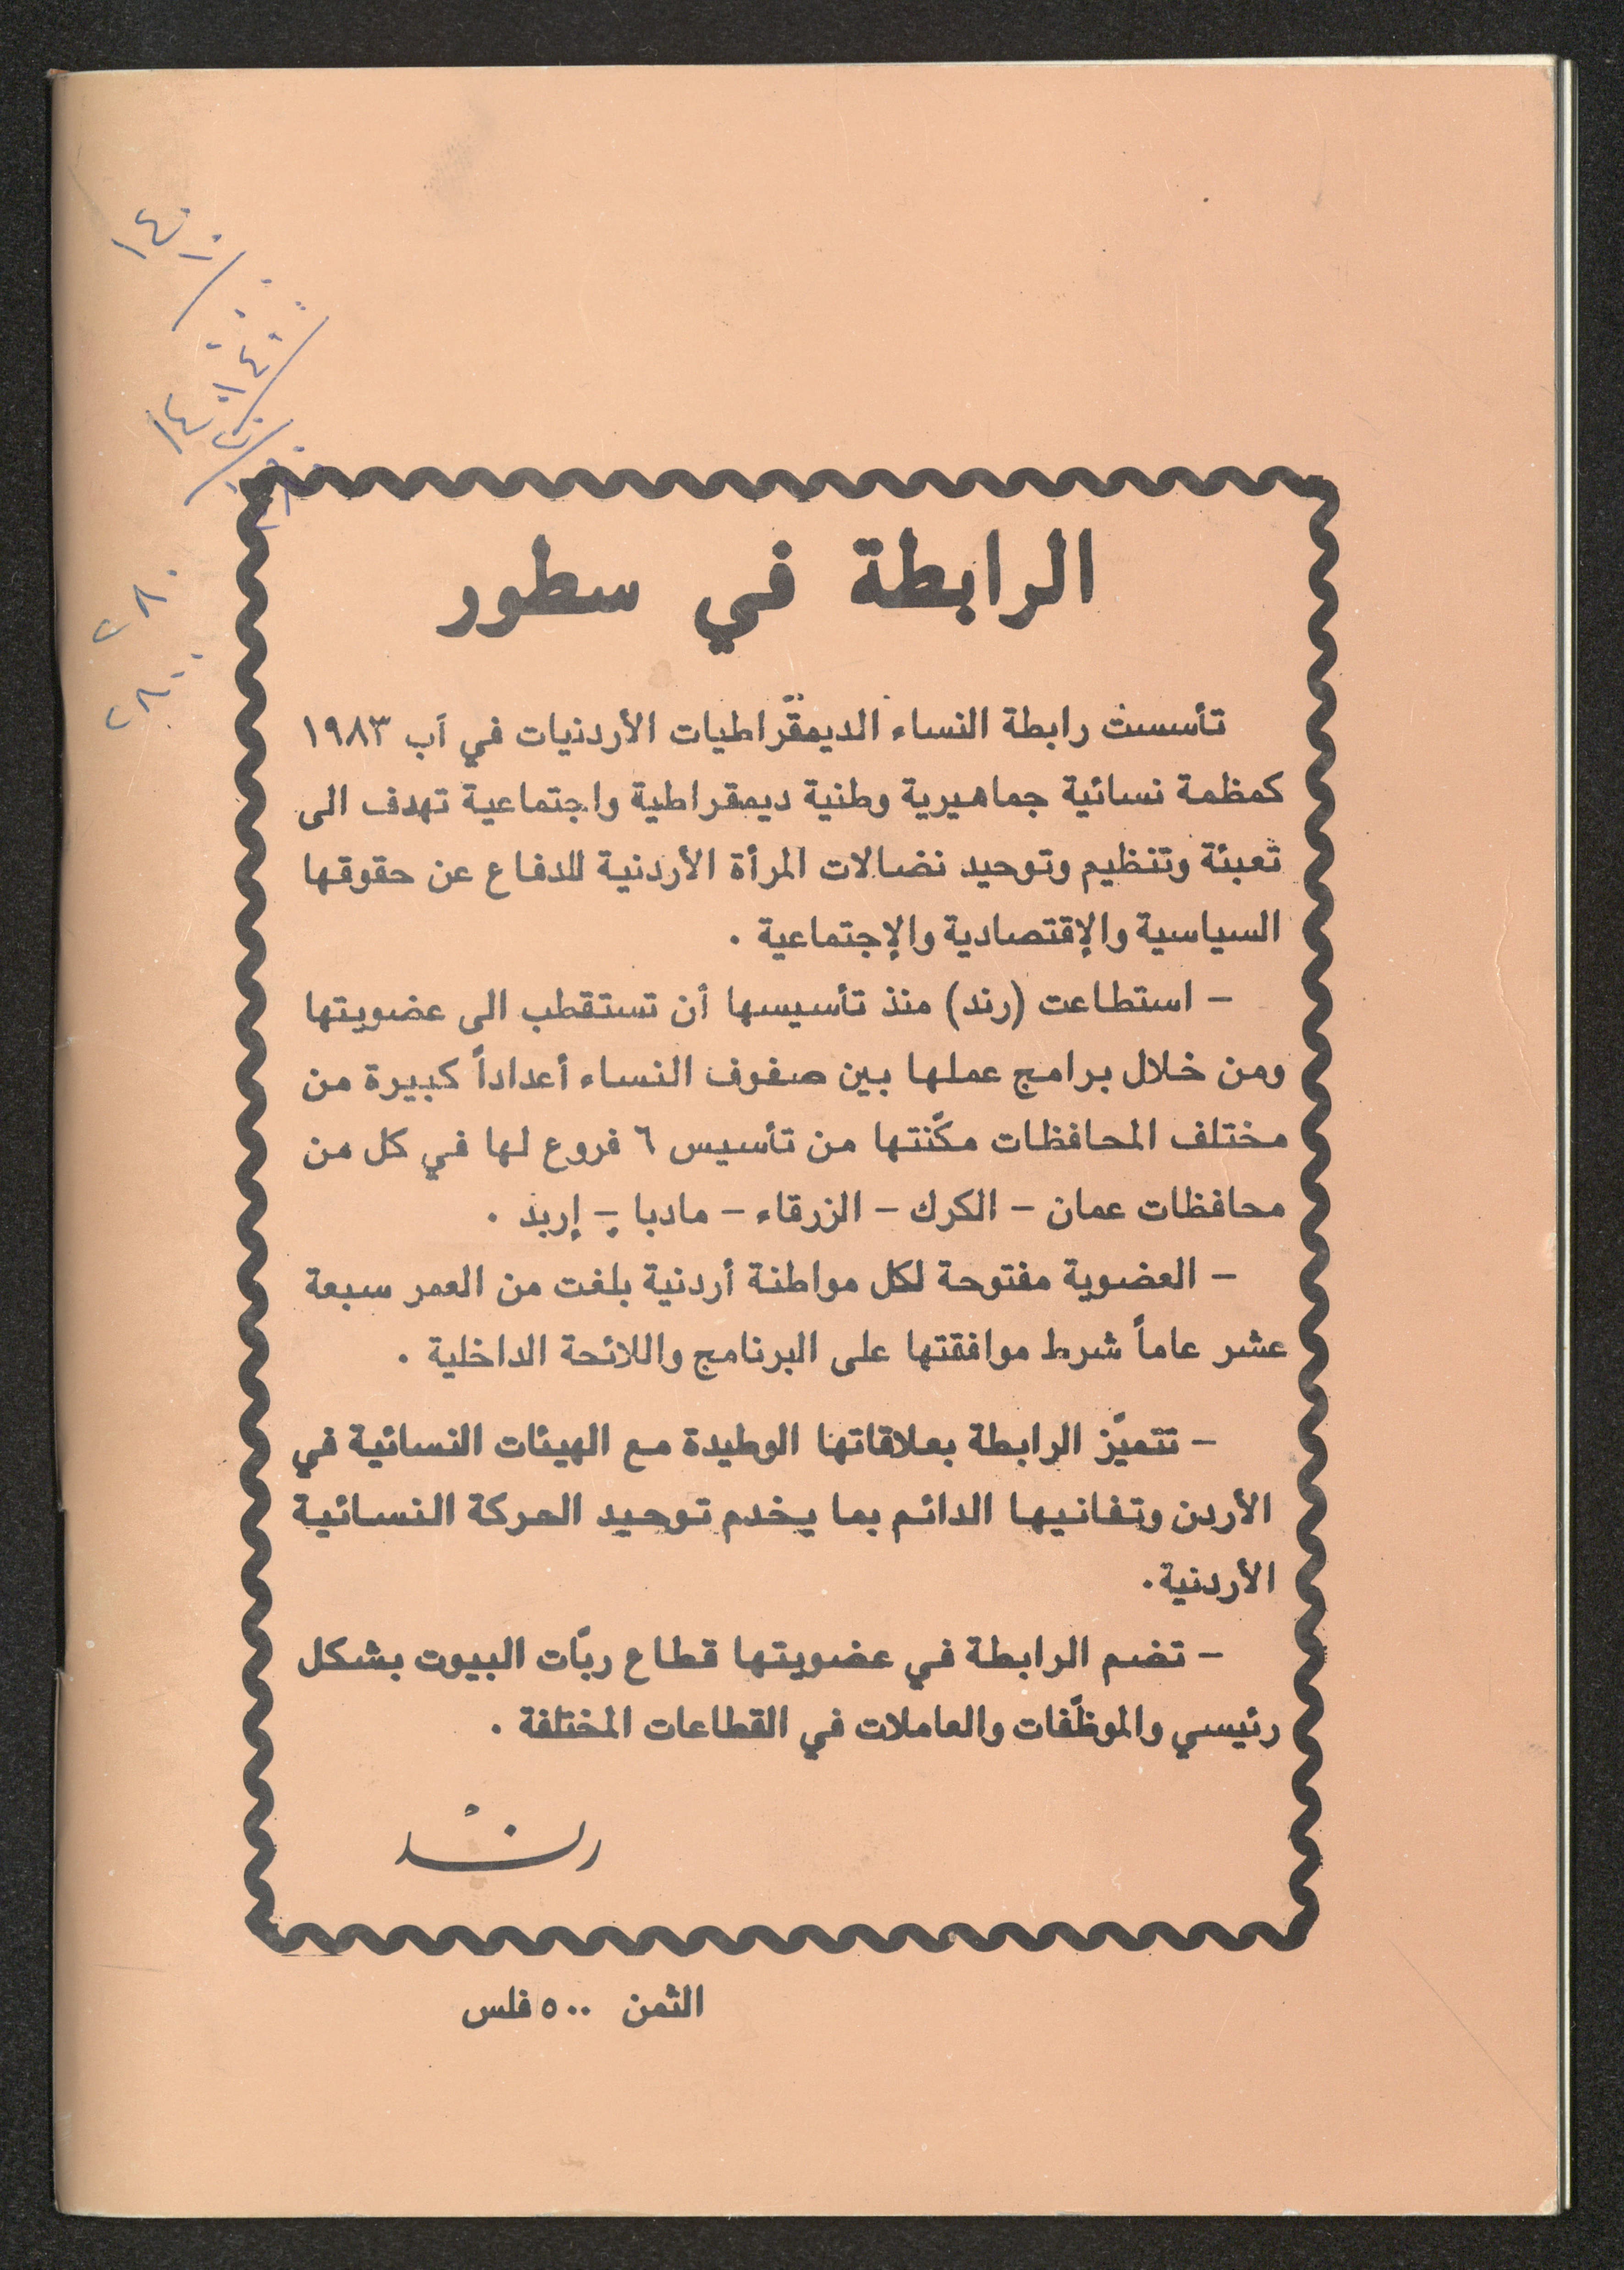 الرابطة في سطور
تأسست رابطة النساء الديمقّراطيات الأردنيات في آب ١٩٨٣
كمظمة نسائية جماهيرية وطنية ديمقراطية واجتماعية تهدف الى
تعبئة وتنظيم وتوحيد نضالات المرأة الأردنية للدفاع عن حقوقها
السياسية والإقتصادية والإجتماعية .
– استطاعت (رند) منذ تأسيسها أن تستقطب الى عضويتها
ومن خلال برامج عملها بين صفوف النساء أعداداً كبيرة من
مختلف المحافظات مكّنتها من تأسيس ٦ فروع لها في كل من
محافظات عمان – الكرك – الزرقاء – مادبا – إربد .
– العضوية مفتوحة لكل مواطنة أردنية بلغت من العمر سبعة
عشر عاماً شرط موافقتها على البرنامج واللائحة الداخلية .
– تتميّز الرابطة بعلاقاتها الوطيدة مع الهيئات النسائية في
الأردن وتفانيها الدائم بما يخدم توحيد الحركة النسائية
الأردنية.
– تضم الرابطة في عضويتها قطاع ربّات البيوت بشكل
رئيسي والموظّفات والعاملات في القطاعات المختلفة .
رند
الثمن ٥٠٠ فلس